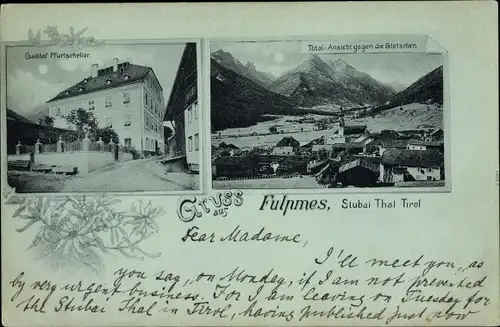 Gasthof Pfurtscheller.
Total-Ansicht gegen die Gletscher.
Gruss aus Fulpmes, Stubai Thal Tirol
Dear Madame,
I'll meet you, as
you say, on Monday, if I am not prevented
by very urgent business. For I am leaving on Tuesday for
the Stubai Thal in Tirol, having published just now